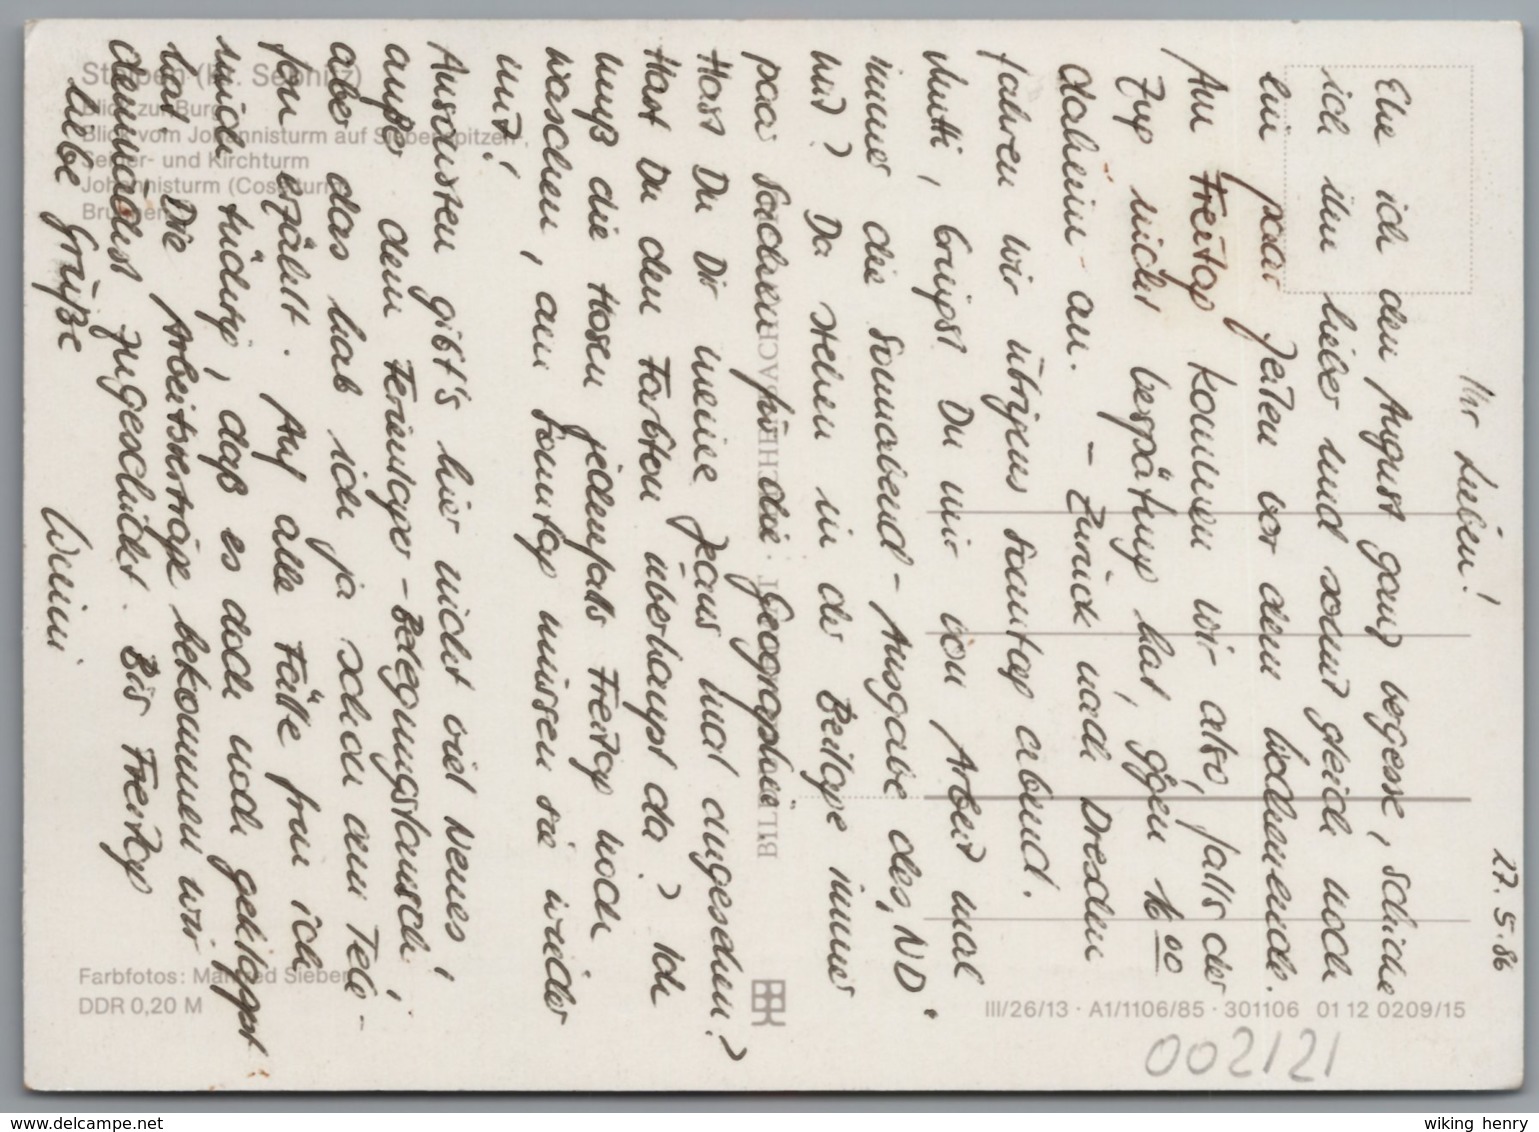 27.5.86
Ihr Lieben!
Ehe ich den August ganz vegesse, schicke
ich ihn lieber und somit gleich noch
ein paar Zeilen vor dem Wochenende.
Am Freitag kommen wir also, falls der
Zug nicht Verspätung hat, gegen 16.00
daheim an. – Zurück nach Dresden
fahren wir übrigens Sonntag abend.
Mutti, bringst Du mir von Arbeit mal
immer die Sonnabend-Ausgabe des "ND"
mit? Da stehen in der Beilage immer
paar Sachen für die Geographie.
Hast Du Dir meine Jeans mal angesehen?
Hast Du den Farbton überhaupt da? Ich
muß die Hosen jedenfalls Freitag noch
waschen, am Sonntag müssen sie wieder
mit!
Ansonsten gibt's hier nicht viel Neues,
außer dem Ferienlager-Belegungstausch,
aber das hab ich ja schon am Tele-
fon erzählt. Auf alle Fälle freu ich
mich tüchtig, daß es doch noch geklappt
hat. Die Arbeitsverträge bekommen wir
demnächst zugeschickt. Bis Freitag
Liebe Grüße
Winni
Stolpen (Kr. Sebnitz)
Blick zur Burg
Blick vom Johannisturm auf Siebenspitzen-,
Seiger- und Kirchturm
Johannisturm (Coselturm)
Brunnen
BILD UND HEIMAT REICHENBACH
Farbfotos: Manfred Sieber
DDR 0,20 M
III/26/13 · A1/1106/85 · 301106 01 12 0209/15
002121
www.delcampe.net
wiking henry